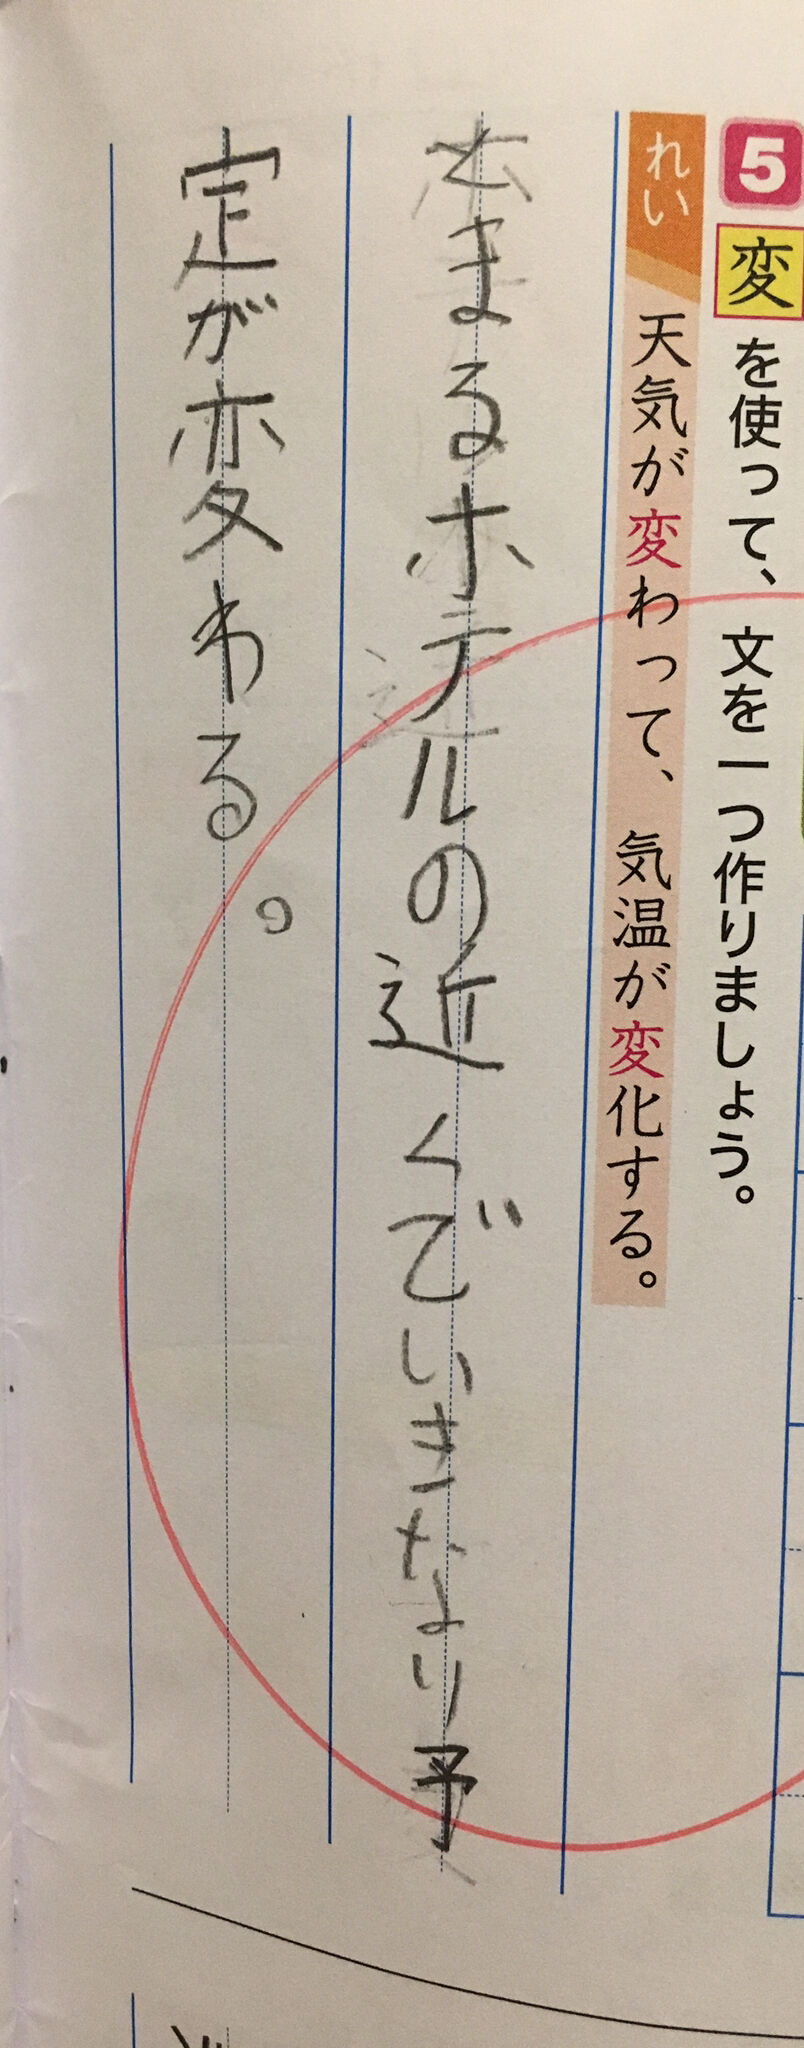 5 変を使って、文を一つ作りましょう。
れい 天気が変わって、気温が変化する。
とまるホテルの近くでいきなより予
定が変わる。